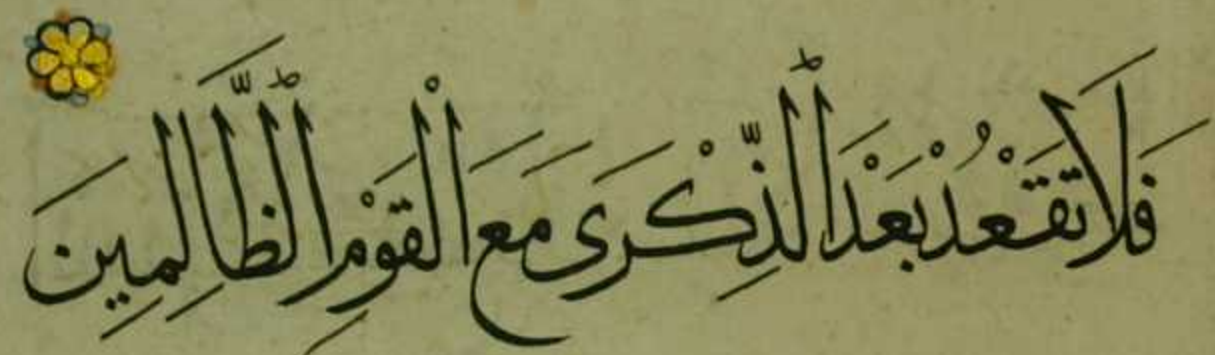 فَلَا تَقْعُدْ بَعْدَ ٱلذِّكْرَى مَعَ ٱلْقَوْمِ ٱلظَّالِمِينَ